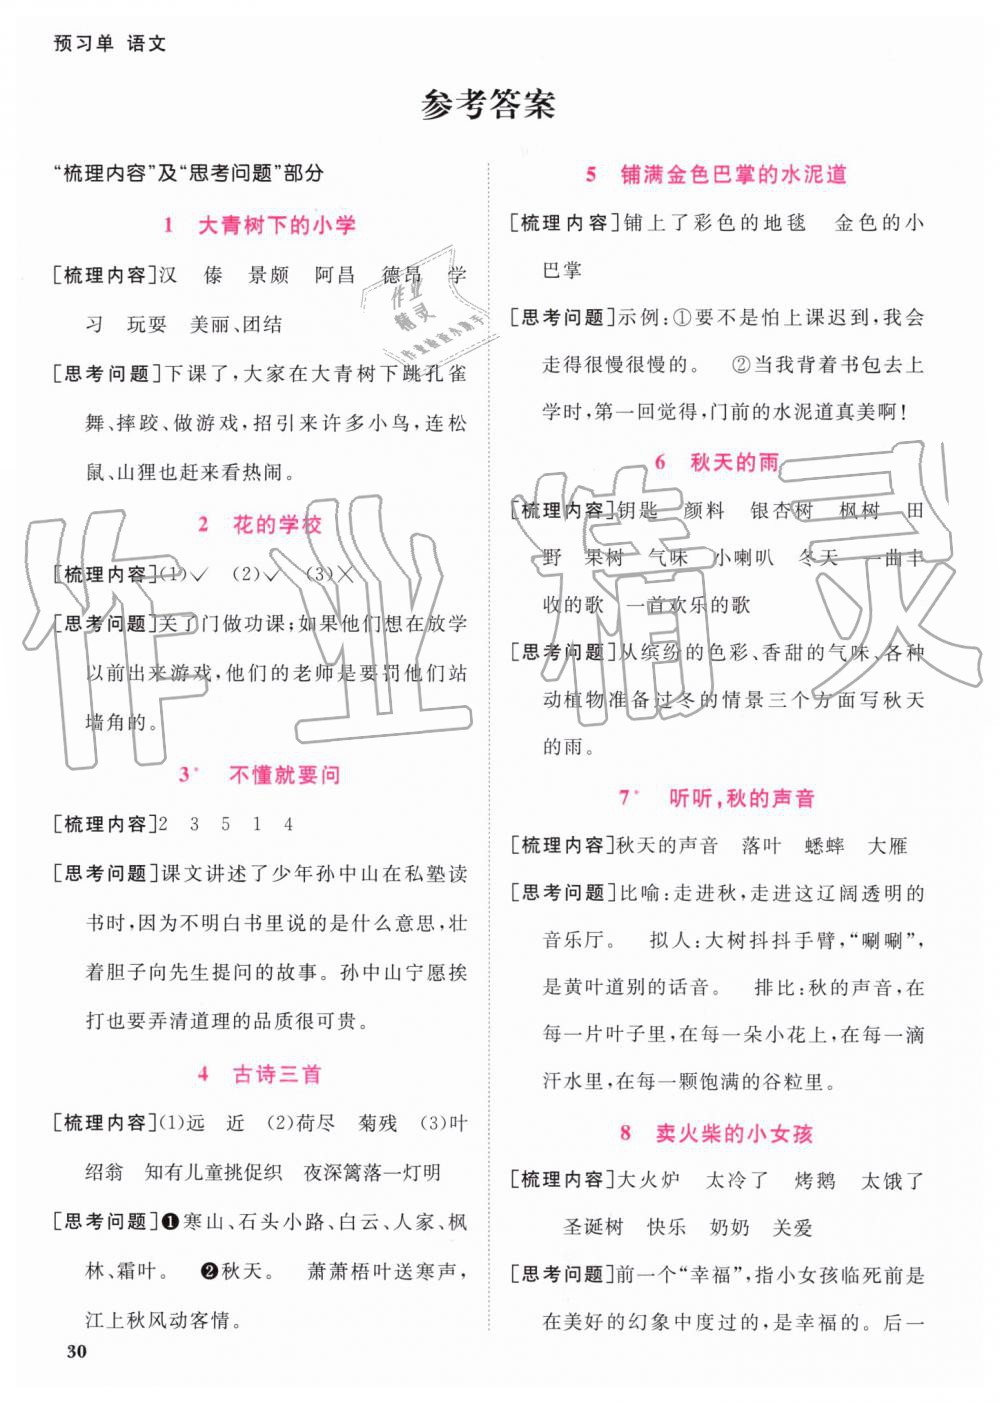 预习单 语文
参考答案
“梳理内容”及“思考问题”部分
1 大青树下的小学
[梳理内容]汉 傣 景颇 阿昌 德昂 学
习 玩耍 美丽、团结
[思考问题]下课了,大家在大青树下跳孔雀
舞、摔跤、做游戏,招引来许多小鸟,连松
鼠、山狸也赶来看热闹。
2 花的学校
[梳理内容](1)✓ (2)✓ (3)×
[思考问题]关了门做功课;如果他们想在放学
以前出来游戏,他们的老师是要罚他们站
墙角的。
3* 不懂就要问
[梳理内容]2 3 5 1 4
[思考问题]课文讲述了少年孙中山在私塾读
书时,因为不明白书里说的是什么意思,壮
着胆子向先生提问的故事。孙中山宁愿挨
打也要弄清道理的品质很可贵。
4 古诗三首
[梳理内容](1)远 近 (2)荷尽 菊残 (3)叶
绍翁 知有儿童挑促织 夜深篱落一灯明
[思考问题]❶寒山、石头小路、白云、人家、枫
林、霜叶。 ❷秋天。 萧萧梧叶送寒声,
江上秋风动客情。
30
5 铺满金色巴掌的水泥道
[梳理内容]铺上了彩色的地毯 金色的小
巴掌
[思考问题]示例:①要不是怕上课迟到,我会
走得很慢很慢的。 ②当我背着书包去上
学时,第一回觉得,门前的水泥道真美啊!
6 秋天的雨
[梳理内容]钥匙 颜料 银杏树 枫树 田
野 果树 气味 小喇叭 冬天 一曲丰
收的歌 一首欢乐的歌
[思考问题]从缤纷的色彩、香甜的气味、各种
动植物准备过冬的情景三个方面写秋天
的雨。
7* 听听,秋的声音
[梳理内容]秋天的声音 落叶 蟋蟀 大雁
[思考问题]比喻:走进秋,走进这辽阔透明的
音乐厅。 拟人:大树抖抖手臂,“唰唰”,
是黄叶道别的话音。 排比:秋的声音,在
每一片叶子里,在每一朵小花上,在每一滴
汗水里,在每一颗饱满的谷粒里。
8 卖火柴的小女孩
[梳理内容]大火炉 太冷了 烤鹅 太饿了
圣诞树 快乐 奶奶 关爱
[思考问题]前一个“幸福”,指小女孩临死前是
在美好的幻象中度过的,是幸福的。后一
作业
精灵
作业检查小助手
作业精灵